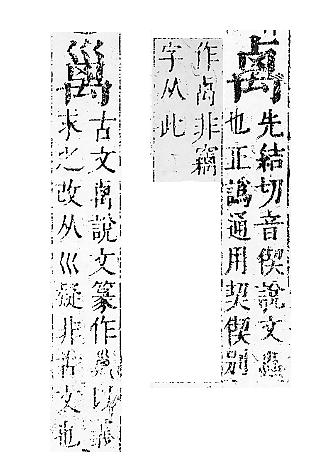 禼
先結切音偰說文蟲
也正譌通用契偰別
作卨非竊
字从此
古文禼說文篆作以
求之改从巛疑非古文也